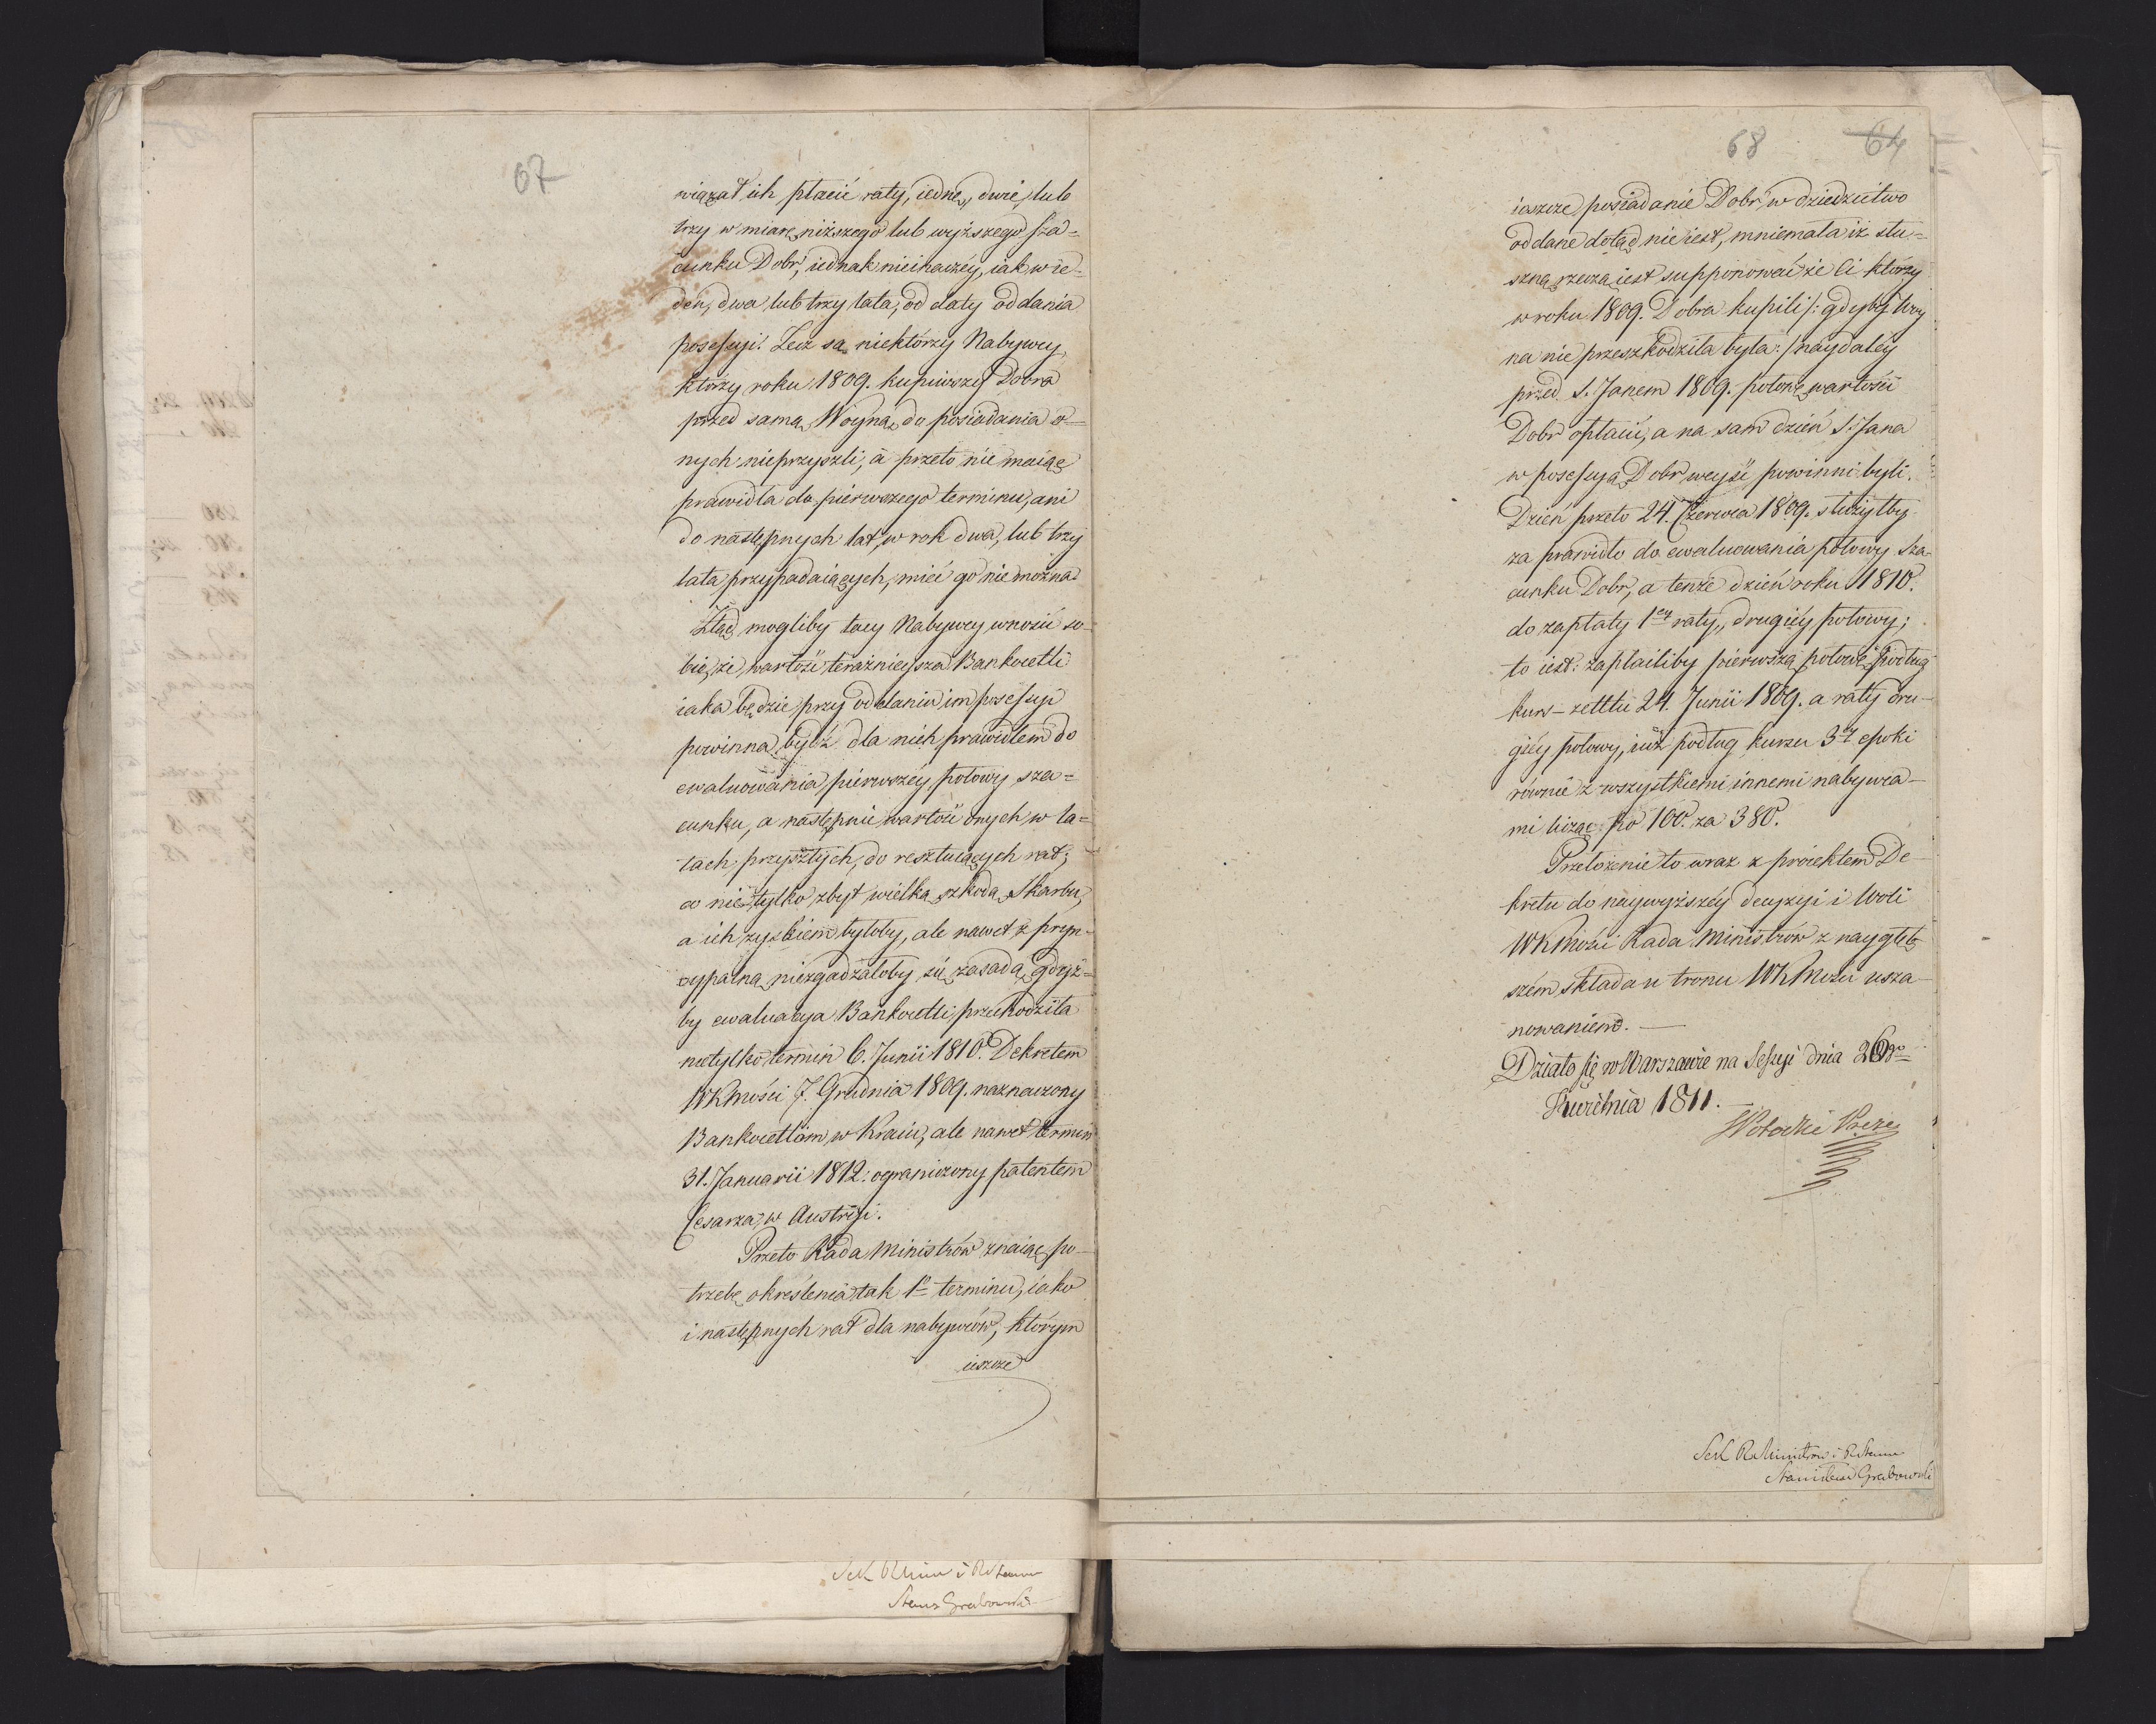 67
wiązał ich płacić raty, iednę, dwie, lub
trzy w miarę niższego lub wyższego sza=
cunku Dobr, iednak nieinaczéy, iak w ie-
den, dwa lub trzy lata, od daty oddania
possessyi. Lecz są niektórzy Nabywcy,
którzy roku 1809. kupiwszy Dobra
przed samą Woyną, do posiadania o-
nych nieprzyszli, a przeto nie maiąc
prawidła do pierwszego terminu, ani
do następnych lat, w rok dwa, lub trzy
lata przypadaiących, mieć go nie można
Ztąd mogliby tacy Nabywcy wnosić so-
bie, że wartość teraźnieysza Bankocetli
iaka będzie przy oddaniu im possessyi
powinna bydź dla nich prawidłem do
ewaluowania pierwszéy połowy sza=
cunku, a następnie wartość onych w la=
tach przyszłych, do resztuiących rat;
co nietylko zbyt wielką szkodą Skarbu,
a ich zyskiem byłoby, ale nawet z pryn-
cypalną niezgadzałoby się zasadą, gdyż=
by ewaluacya Bankocetli przechodziła
nietylko termin 6. Junii 1810. Dekretem
WKMości 7. Grudnia 1809. naznaczony
Bankocetlom w Kraiu, ale nawet termin
31. Januarii 1812. ograniczony patentem
Cesarza w Austryi.
Przeto Rada Ministrów znaiąc po-
trzebę określenia tak 1o terminu, iako
i następnych rat dla nabywców, którym
ieszcze
68 64
ieszcze posiadanie Dobr w dziedzictwo
oddane dotąd nie iest, mniemała iż słu=
szną rzeczą iest supponować że Ci którzy
w roku 1809. Dobra kupili /: gdyby Woy
na nie przeszkodziła była :/ naydaléy
przed S. Janem 1809. połowę wartości
Dobr opłacić, a na sam dzień S. Jana
w possessyą Dobr weyść powinni byli.
Dzień przeto 24. Czerwca 1809. służyłby
za prawidło do ewaluowania połowy sza-
cunku Dobr, a tenże dzień roku 1810.
do zapłaty 1ey raty, drugiéy połowy;
to iest: zapłaciliby pierwszą połowę podług
kurs-zettlu 24. Junii 1809. a raty dru-
giéy połowy, iuż podług kursu 3éy epoki
równie z wszystkiemi innemi nabywca-
mi licząc po 100. za 380.
Przełożenie to wraz z proiektem De-
kretu do naywyższéy decyzyi i Woli
WKMości Rada Ministrów z naygłęb
szém składa u tronu WKMości usza-
nowaniem.
Działo się w Warszawie na Sessyi dnia 26go
Kwietnia 1811.
Sek R Ministrów i R Stanu
Stanisław Grabowski
Sek RMin i RStanu
Stanis Grabowski